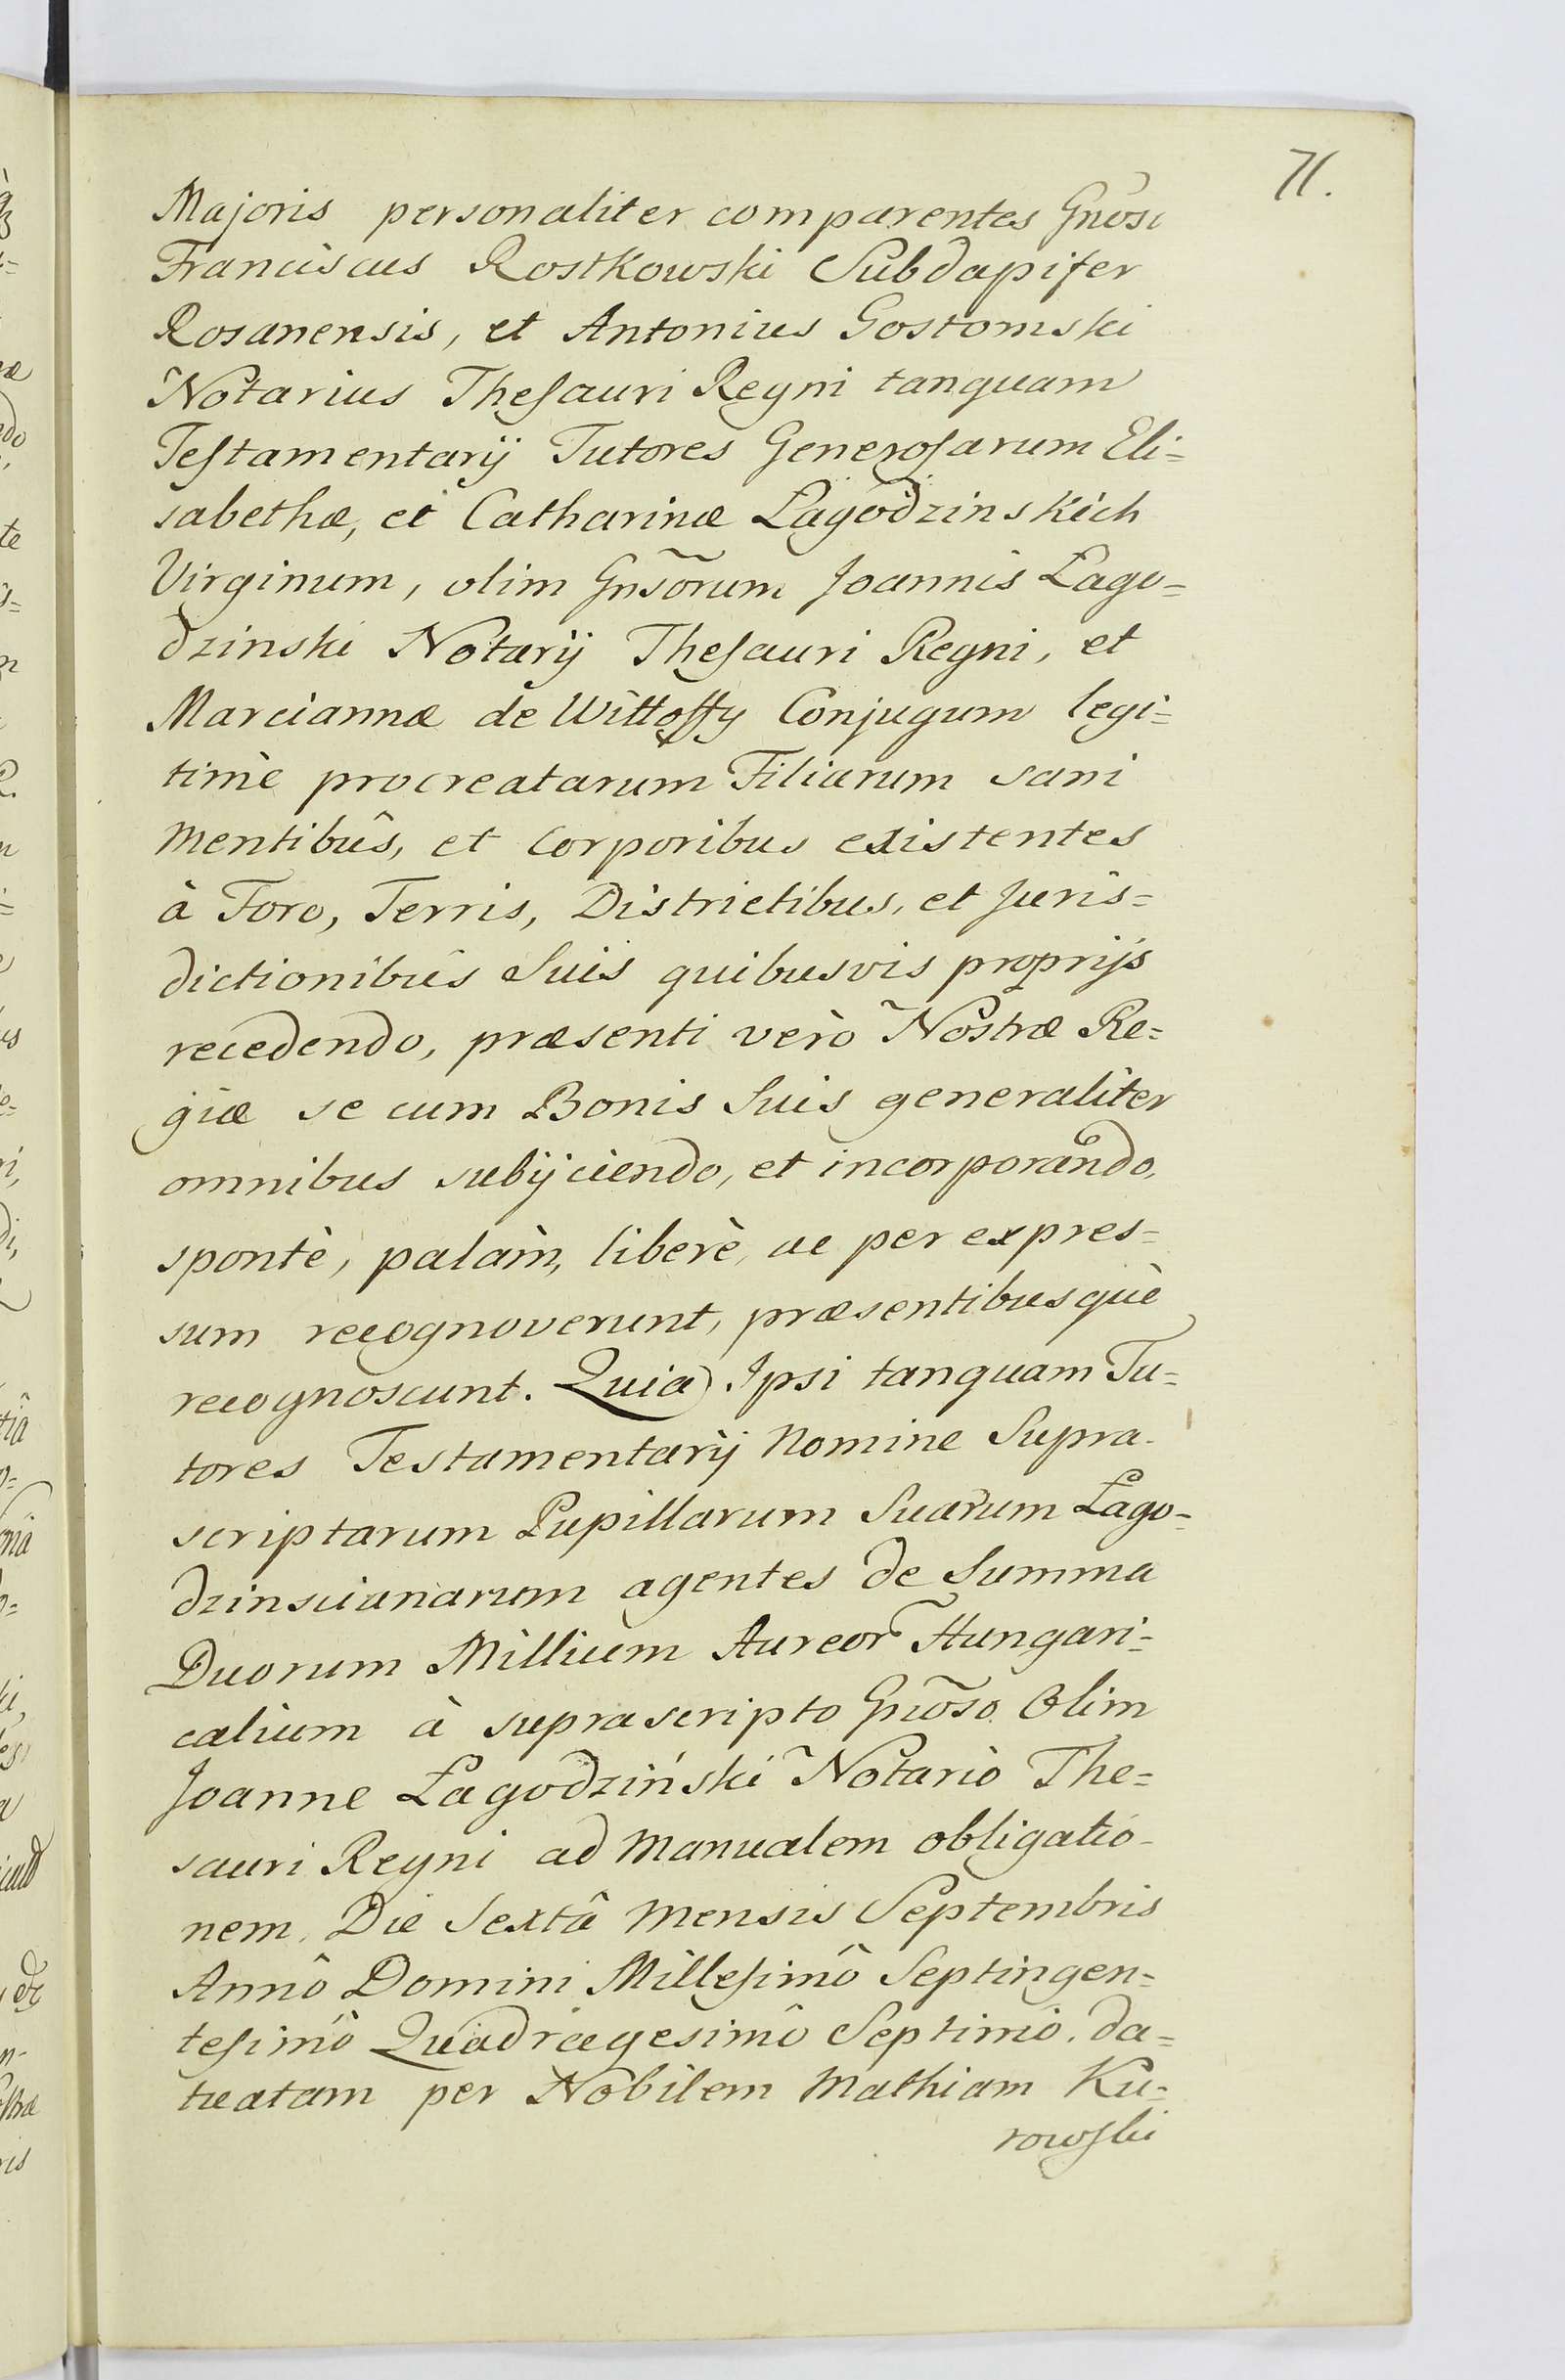 71.
Majoris personaliter comparentes Gnosi
Franciscus Rostkowski Subdapifer
Rosanensis, et Antonius Gostomski
Notarius Thesauri Regni tanquam
Testamentarij Tutores Generosarum Eli=
sabethæ, et Catharinæ Łagodzinskich
Virginum, olim Gnsõrum Joannis Łago=
dzinski Notarij Thesauri Regni, et
Marciannæ de Wittoffy Conjugum legi=
timè procreatarum Filiarum sani
mentibûs, et Corporibus existentes
à Foro, Terris, Districtibus, et Juris=
dictionibûs Suis quibusvis proprijs
recedendo, præsenti verò Nostræ Re=
giæ se cum Bonis Suis generaliter
omnibus subijciendo, et incorporando,
spontè, palàm, liberè, ac per expres=
sum recognoverunt, præsentibusquè
recognoscunt. Quia Ipsi tanquam Tu=
tores Testamentarij Nomine Supra-
scriptarum Pupillarum Suarum Łago=
dzinscianarum agentes de Summa
Duorum Millium Aureor̃ Hungari=
calium à suprascripto Gnõso Olim
Joanne Łagodziński Notariò The=
sauri Regni ad Manualem obligatio-
nem, Die Sextâ Mensis Septembris
Annô Domini Millesimô Septingen=
tesimô Quadragesimô Septimô. da=
tuatam per Nobilem Mathiam Ku=
rowski